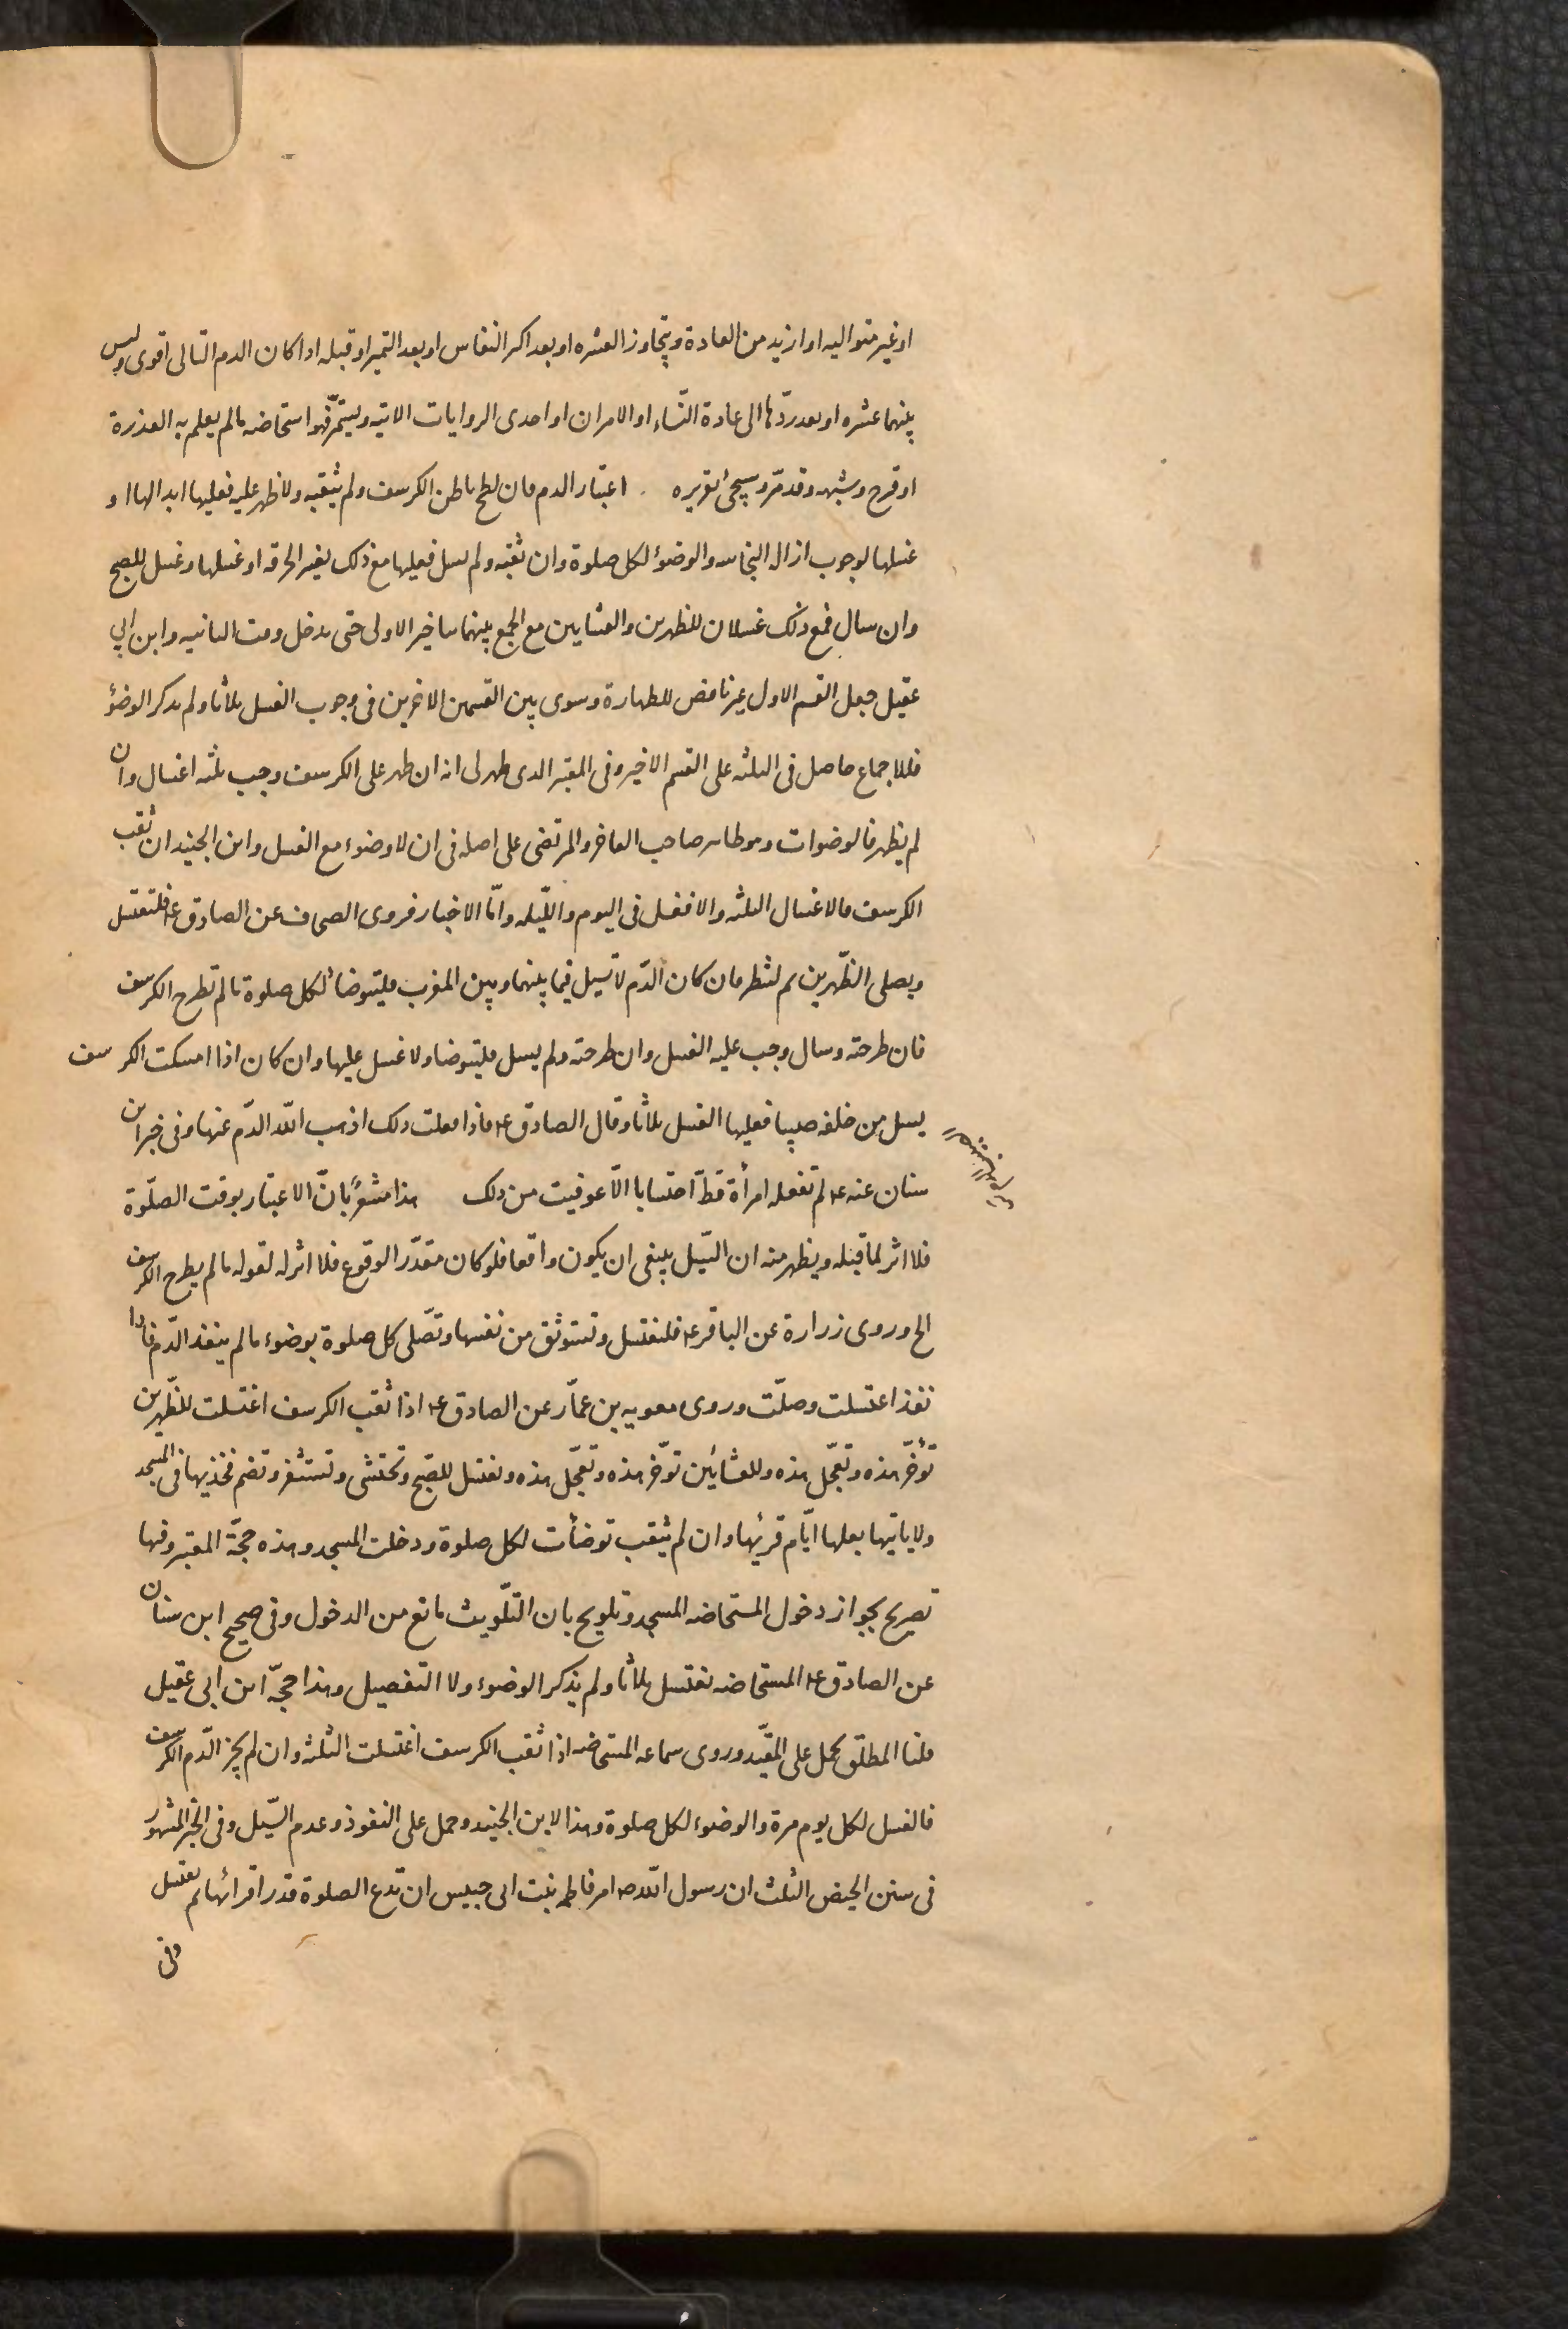 او غير متواليه او ازيد من العادة ويتجاوز العشره او بعد اكثر النفاس او بعد التميز او قبله اذا كان الدم التالى اقوى وليس
بينهما عشره او بعد ردّها الى عادة النّساء او الاقران او احدى الروايات الاتيه ويستمرّ فهو استحاضه ما لم يعلم به العذرة
او قرح وشبهه وقد مرّ وسيجئ تقريره اعتبار الدم فان لطخ باطن الكرسف ولم يثقبه ولا ظهر عليه فعليها ابدالها او
غسلها لوجوب ازالة النجاسه والوضوء لكل صلوة وان ثقبه ولم يسل فعليها مع ذلك تغيير الخرقه او غسلها وغسل للصبح
وان سال فمع ذلك غسلان للظهرين والعشايين مع الجمع بينهما بتاخير الاولى حتى يدخل وقت الثانيه وابن ابي
عقيل جعل القسم الاول غير ناقض للطهارة وسوى بين القسمين الاخرين فى وجوب الغسل ثلاثا ولم يذكر الوضؤ
فللاجماع حاصل فى الثلثه على القسم الاخير وفى المعتبر الذى ظهر لى انه ان ظهر على الكرسف وجب ثلثه اغسال وان
لم يظهر فالوضوات وهو ظاهر صاحب الفاخر والمرتضى على اصله فى ان لا وضوء مع الغسل وابن الجنيد ان ثقب
الكرسف فالاغسال الثلثه والا فغسل فى اليوم والليّله وامّا الاخبار فروى الصحاف عن الصادق ع فلتغتسل
ويصلى الظّهرين ثم لتنظر فان كان الدّم لا تسيل فيما بينهما وبين المغرب فليتوضأ لكل صلوة ما لم تطرح الكرسف
فان طرحته وسال وجب عليه الغسل وان طرحته ولم يسل فليتوضا ولا غسل عليها وان كان اذا امسكت الكرسف
يسل من خلفه صبيبا فعليها الغسل ثلاثا وقال الصادق ع فاذا فعلت ذلك اذهب اللّه الدّم عنها وفى خبر ابن
سنان عنه ع لم تفعله امرأة قطّ احتسابا الّا عوفيت من ذلك هذا مشعرٌ بانّ الاعتبار بوقت الصلّوة
فلا اثر لما قبله ويظهر منه ان السّيل ينبغى ان يكون واقعا فلو كان مقدّر الوقوع فلا اثر له لقوله ما لم يطرح الكرسف
الخ وروى زرارة عن الباقر ع فلتغتسل وتستوثق من نفسها وتصّلى كل صلوة بوضوء ما لم ينفذ الدّم فاذا
نفذ اغتسلت وصلّت وروى معويه بن عمّار عن الصادق ع اذا ثقب الكرسف اغتسلت للظّهرين
تؤخّر هذه وتعجّل هذه وللعشايئن تؤخّر هذه وتعجّل هذه وتغتسل للصّبح وتحتشى وتستثفر وتضم فخذيها فى المسجد
ولا ياتيها بعلها ايّام قرئها وان لم يثقب توضأت لكل صلوة ودخلت المسجد وهذه حجّة المعتبر وفيها
تصريح بجواز دخول المستحاضه المسجد وتلويح بان التلّويث مانع من الدخول وفى صحيح ابن سنان
عن الصادق ع المستحاضه تغتسل ثلاثا ولم يذكر الوضوء ولا التفصيل وهذا حجّة ابن ابى عقيل
قلنا المطلق يحمل على المقيّد وروى سماعه المستحاضه اذا ثقب الكرسف اغتسلت الثلثه وان لم يجز الدّم الكرسف
فالغسل لكل يوم مرة والوضوء لكل صلوة وهذا لابن الجنيد وحمل على النفوذ وعدم السّيل وفى الخبر المشهور
فى سنن الحيض الثلث ان رسول اللّه ص امر فاطمه بنت ابى حبيس ان تدع الصلوة قدر اقرائها ثم تغتسل
وفى